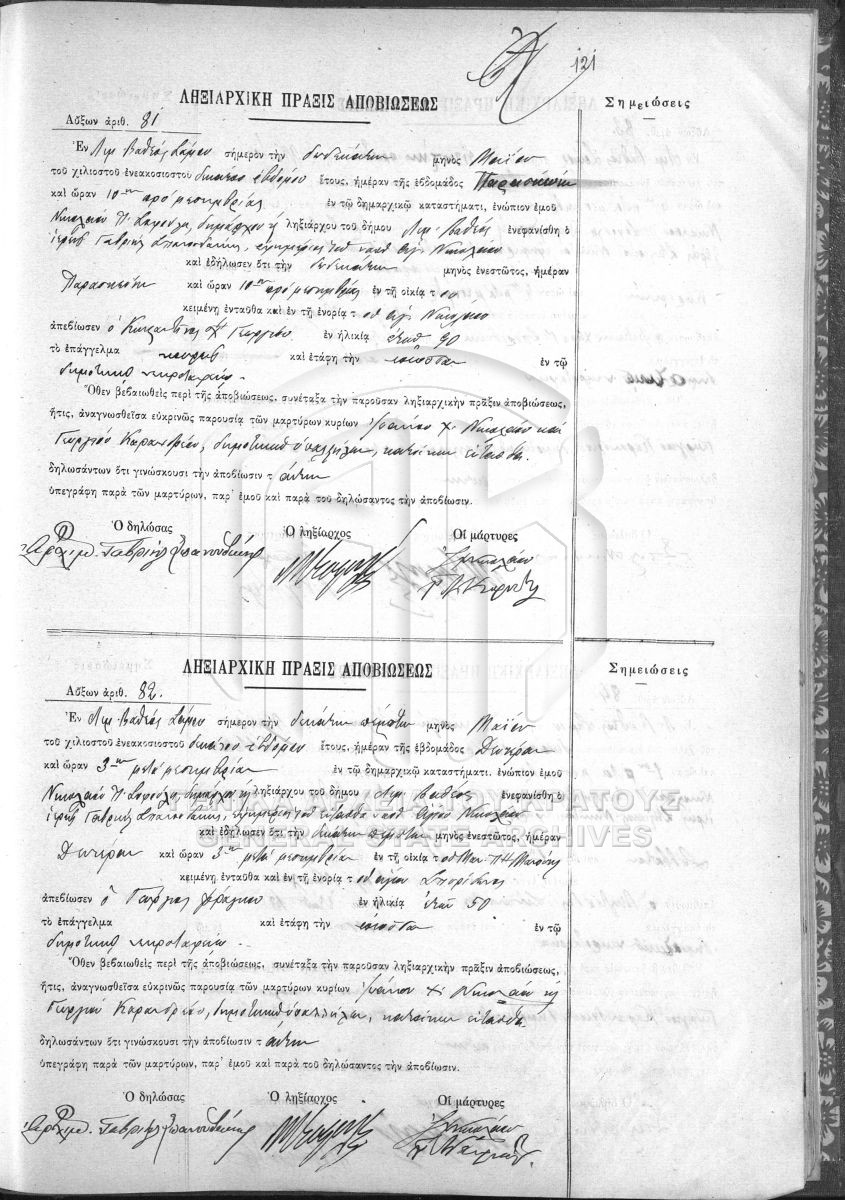 121
ΛΗΞΙΑΡΧΙΚΗ ΠΡΑΞΙΣ ΑΠΟΒΙΩΣΕΩΣ
Σημειώσεις
Αὔξων ἀριθ. 81
Ἐν Λιμ. Βαθέος Σάμου σήμερον τὴν δωδεκάτην μηνὸς Μαΐου
τοῦ χιλιοστοῦ ἐνεακοσιοστοῦ δεκάτου ἑβδόμου ἔτους, ἡμέραν τῆς ἑβδομάδος Παρασκευὴν
καὶ ὥραν 10ην πρὸ μεσημβρίας ἐν τῷ δημαρχικῷ καταστήματι, ἐνώπιον ἐμοῦ
Νικολάου δημάρχου ληξιάρχου τοῦ δήμου Λιμ. Βαθέος ἐνεφανίσθη ὁ
ἱερεὺς Γαβριὴλ ἐφημέριος τοῦ ναοῦ Ἁγ. Νικολάου
καὶ ἐδήλωσεν ὅτι τὴν δωδεκάτην μηνὸς ἐνεστῶτος, ἡμέραν
Παρασκευὴν καὶ ὥραν 10ην πρὸ μεσημβρίας ἐν τῇ οἰκίᾳ τοῦ
κειμένῃ ἐνταῦθα καὶ ἐν τῇ ἐνορίᾳ τοῦ ἁγ. Νικολάου
ἀπεβίωσεν ὁ Κωνσταντῖνος Γεωργίου ἐν ἡλικίᾳ ἐτῶν 90
τὸ ἐπάγγελμα καὶ ἐτάφη τὴν ἰδίαν ἐν τῷ
δημοτικῷ νεκροταφείῳ.
Ὅθεν βεβαιωθεὶς περὶ τῆς ἀποβιώσεως, συνέταξα τὴν παροῦσαν ληξιαρχικὴν πρᾶξιν ἀποβιώσεως,
ἥτις, ἀναγνωσθεῖσα εὐκρινῶς παρουσίᾳ τῶν μαρτύρων κυρίων Νικολάου καὶ
Γεωργίου δημοτικῶν ὑπαλλήλων, κατοίκων ἐνταῦθα
δηλωσάντων ὅτι γινώσκουσι τὴν ἀποβίωσιν τ αὐτοῦ
ὑπεγράφη παρὰ τῶν μαρτύρων, παρ' ἐμοῦ καὶ παρὰ τοῦ δηλώσαντος τὴν ἀποβίωσιν.
Ὁ δηλώσας Ὁ ληξίαρχος Οἱ μάρτυρες
ΛΗΞΙΑΡΧΙΚΗ ΠΡΑΞΙΣ ΑΠΟΒΙΩΣΕΩΣ
Σημειώσεις
Αὔξων ἀριθ. 82.
Ἐν Λιμ. Βαθέος Σάμου σήμερον τὴν δεκάτην πέμπτην μηνὸς Μαΐου
τοῦ χιλιοστοῦ ἐνεακοσιοστοῦ δεκάτου ἑβδόμου ἔτους, ἡμέραν τῆς ἑβδομάδος Δευτέραν
καὶ ὥραν 3ην μετὰ μεσημβρίαν ἐν τῷ δημαρχικῷ καταστήματι, ἐνώπιον ἐμοῦ
Νικολάου δημάρχου ληξιάρχου τοῦ δήμου Λιμ. Βαθέος ἐνεφανίσθη ὁ
ἱερεὺς Γαβριὴλ ἐφημέριος τοῦ ἐνταῦθα ναοῦ Ἁγίου Νικολάου
ΓΕΝΙΚΑ ΑΡΧΕΙΑ ΤΟΥ ΚΡΑΤΟΥΣ
GENERAL STATE ARCHIVES
καὶ ἐδήλωσεν ὅτι τὴν δεκάτην πέμπτην μηνὸς ἐνεστῶτος, ἡμέραν
Δευτέραν καὶ ὥραν 3ην μετὰ μεσημβρίαν ἐν τῇ οἰκίᾳ τοῦ
κειμένῃ ἐνταῦθα καὶ ἐν τῇ ἐνορίᾳ τοῦ ἁγίου Σπυρίδωνος
ἀπεβίωσεν ὁ Γεώργιος ἐν ἡλικίᾳ ἐτῶν 50
τὸ ἐπάγγελμα καὶ ἐτάφη τὴν ἰδίαν ἐν τῷ
δημοτικῷ νεκροταφείῳ.
Ὅθεν βεβαιωθεὶς περὶ τῆς ἀποβιώσεως, συνέταξα τὴν παροῦσαν ληξιαρχικὴν πρᾶξιν ἀποβιώσεως,
ἥτις, ἀναγνωσθεῖσα εὐκρινῶς παρουσίᾳ τῶν μαρτύρων κυρίων Νικολάου
Γεωργίου δημοτικῶν ὑπαλλήλων, κατοίκων ἐνταῦθα
δηλωσάντων ὅτι γινώσκουσι τὴν ἀποβίωσιν τ αὐτοῦ
ὑπεγράφη παρὰ τῶν μαρτύρων, παρ' ἐμοῦ καὶ παρὰ τοῦ δηλώσαντος τὴν ἀποβίωσιν.
Ὁ δηλώσας Ὁ ληξίαρχος Οἱ μάρτυρες